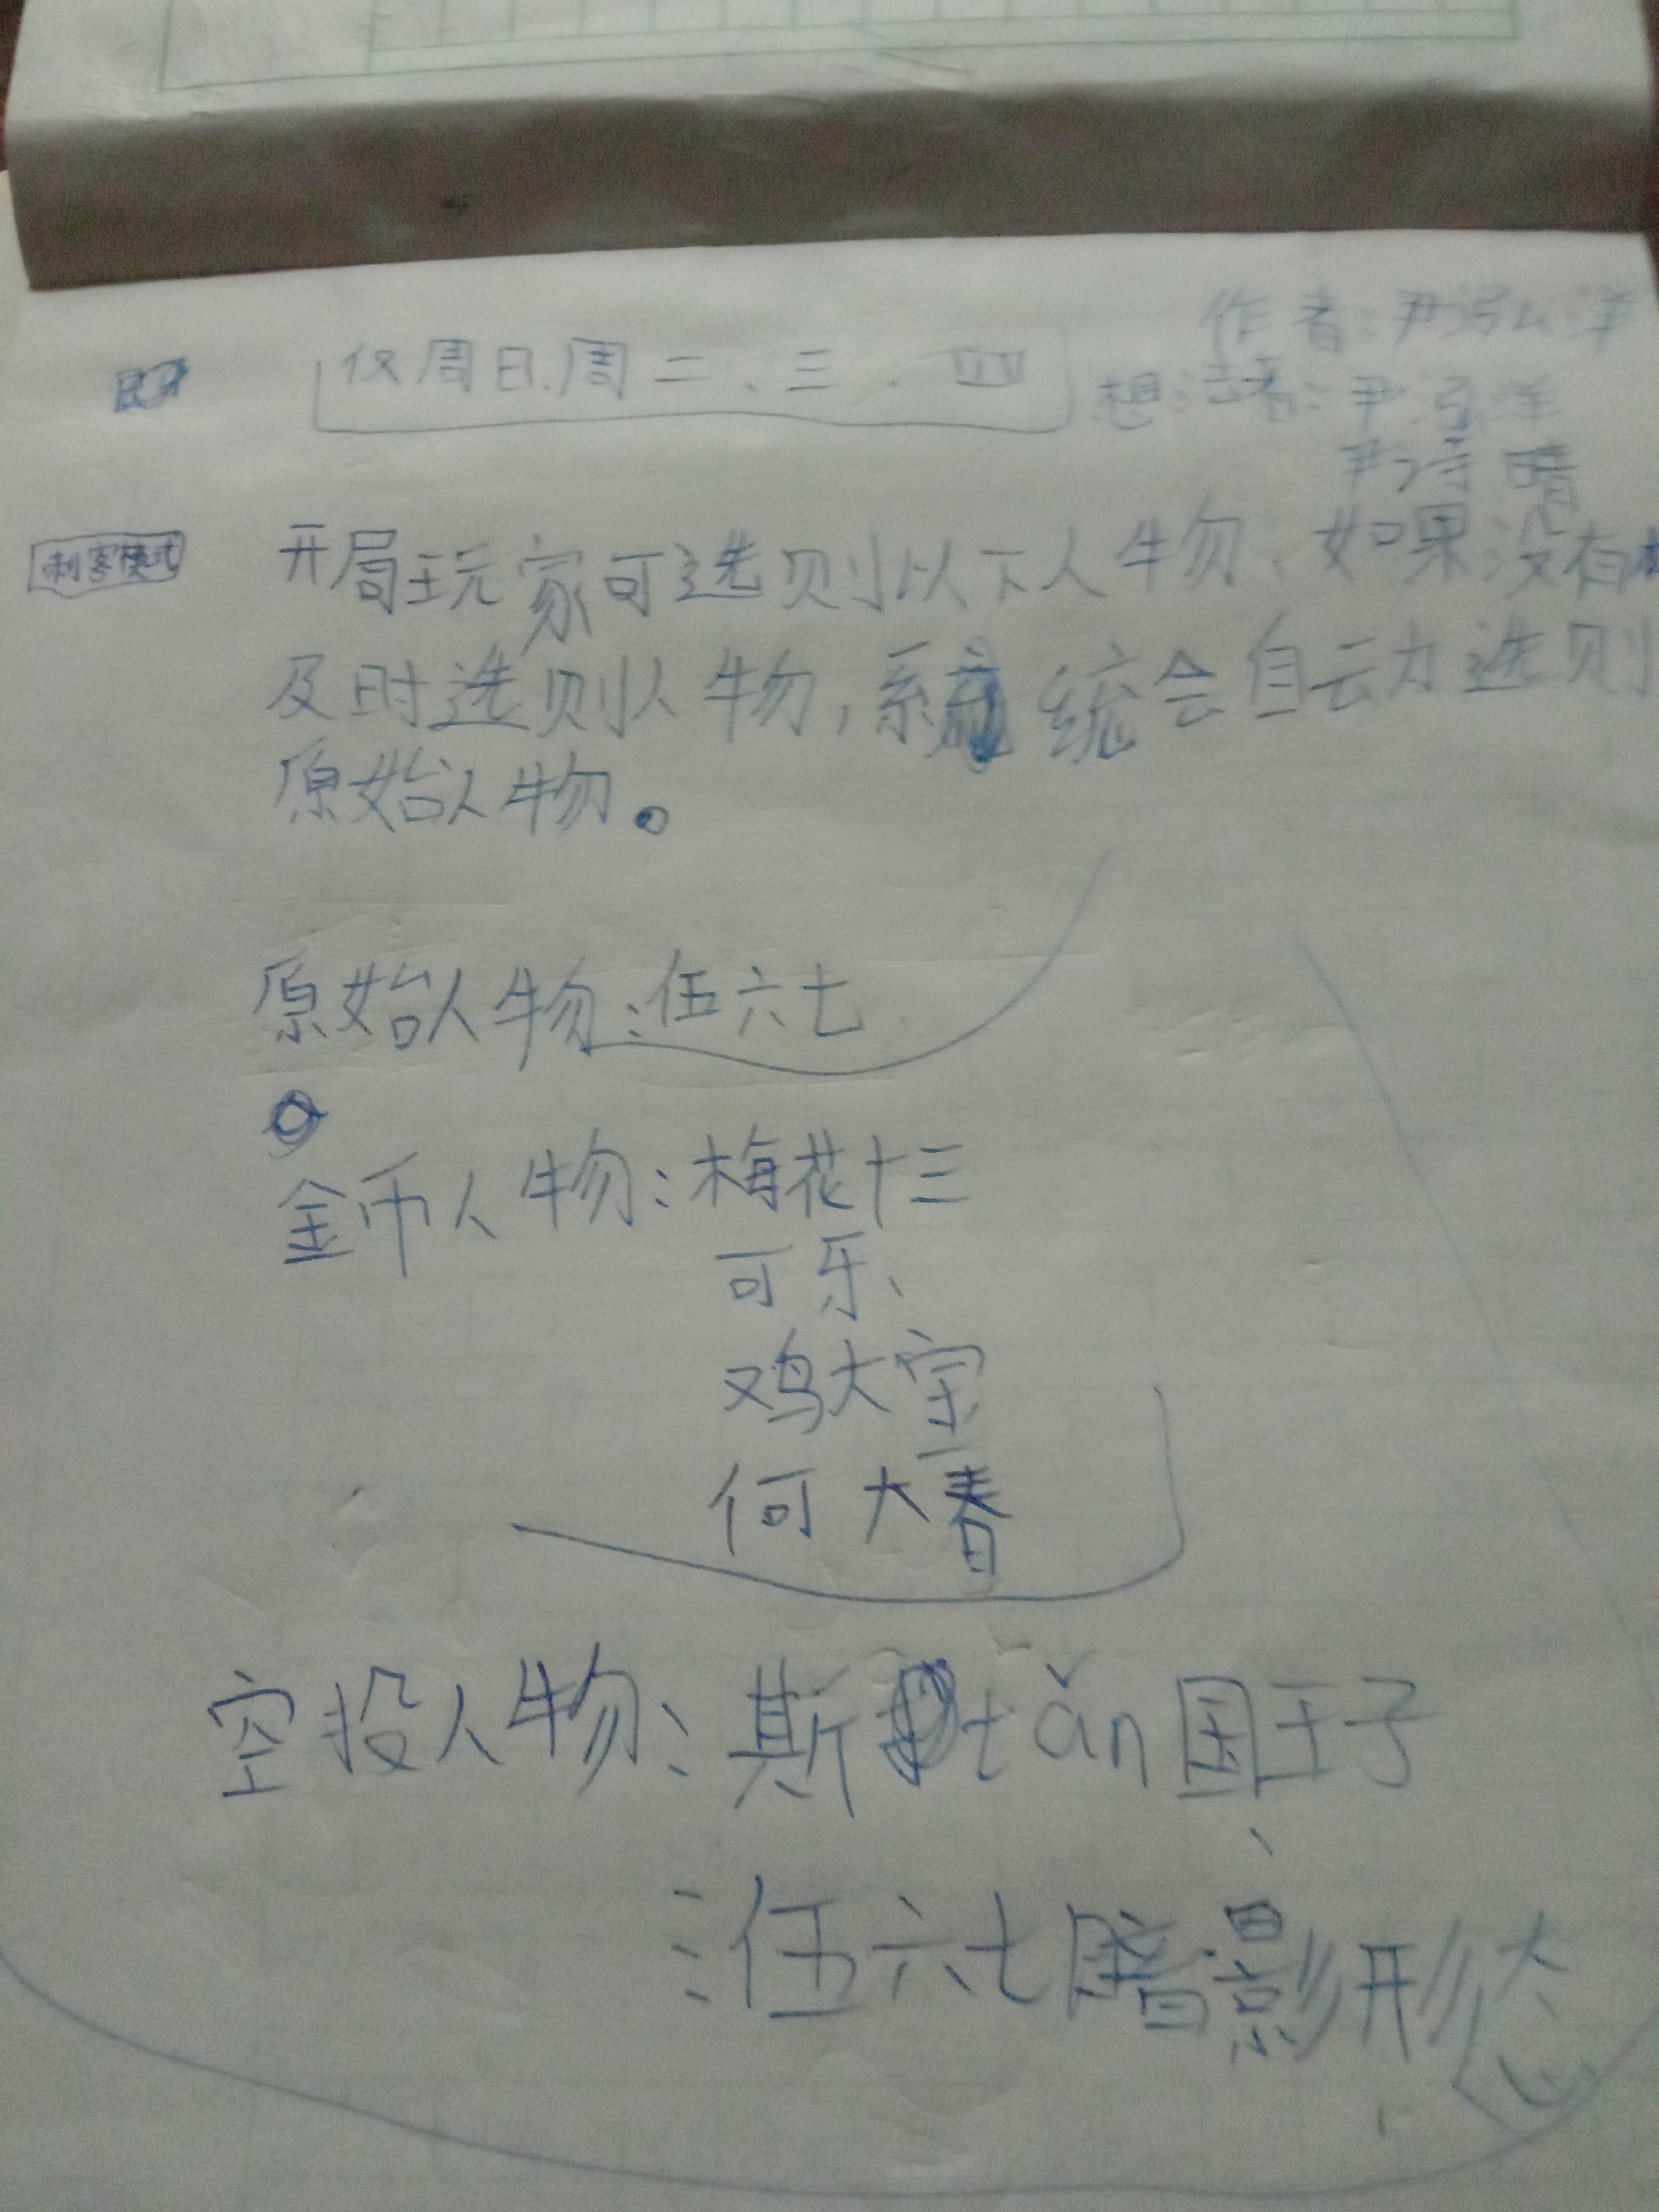 作者:尹泓洋
仅周日.周二、三、四
想法者:尹泓洋
尹诗晴
刺客模式
开局玩家可选则以下人物、如果没有
及时选则人物,系统会自动选则
原始人物。
原始人物:伍六七
金币人物:梅花十三
可乐、
鸡大宗
何大春
空投人物:斯tǎn国王子、
:伍六七暗影形态